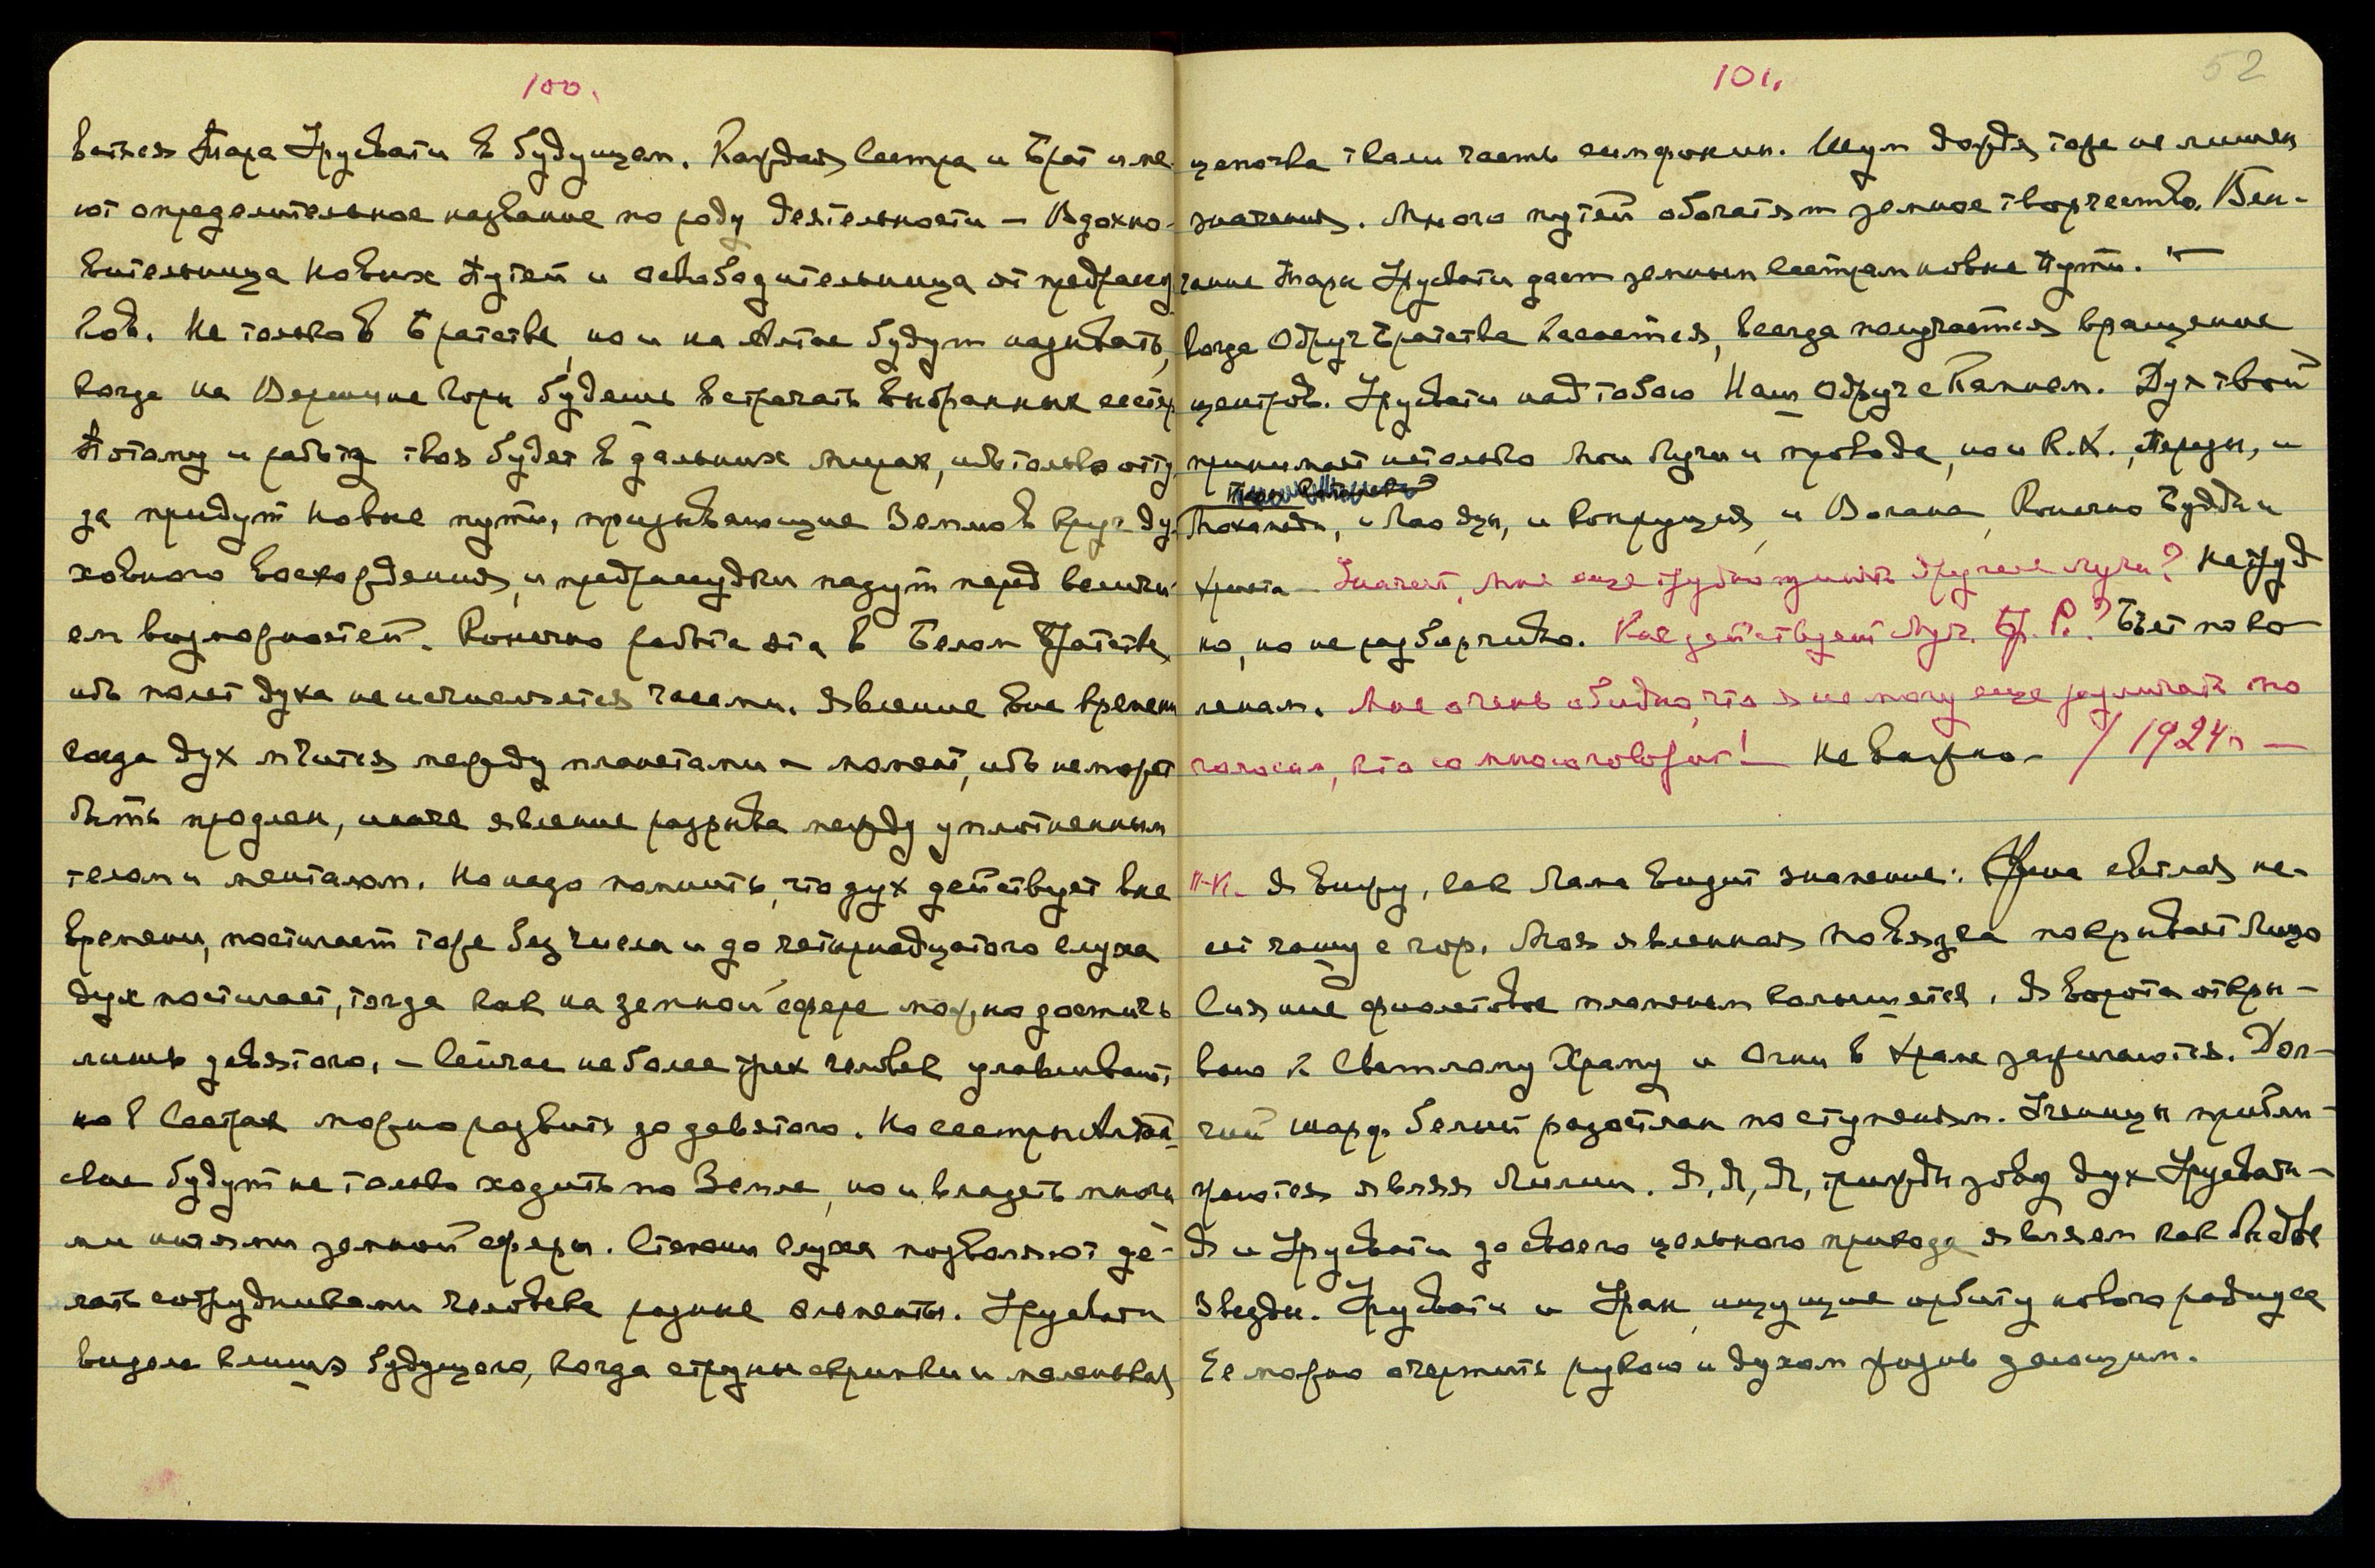 100.
вится Тара Урусвати в будущем. Каждая Сестра и Брат име-
ют определительное название по роду деятельности — Вдохно-
вительница Новых Путей и Освободительница от предрассуд-
ков. Не только в Братстве, но и на Алтае будут называть,
когда на Вершине Горы будешь встречать выбранных сестер
Потому и работа твоя будет в дальних мирах, ибо только отту-
да придут новые пути, призывающие Землю в круг ду-
ховного восхождения, и предрассудки падут перед величи-
ем возможностей. Конечно работа эта в Белом Братстве,
ибо полет духа не исчисляется часами. Явление вне времени
когда дух мчится между планетами — момент, ибо не может
быть продлен, иначе явление разрыва между уплотненным
телом и менталом. Но надо помнить, что дух действует вне
времени, постигает тоже без числа и до четырнадцатого слуха
дух постигает, тогда как на земной сфере можно достичь
лишь девятого, — Сейчас не более трех человек улавливают,
но в Сестрах можно развить до девятого. Но сестры Алтай-
ские будут не только ходить по Земле, но и владеть многи
ми нитями земной сферы. Степени слуха позволяют де-
лать сотрудниками человека разные элементы. Урусвати
видела клише будущего, когда струны скрипки и маленькая
101.
52
цепочка твали часть симфонии. Шум дождя тоже не лишен
значения. Много путей обогатят земное творчество. Вен-
чание Тары Урусвати дает земным Сестрам новые Пути. —
когда Обруч Братства касается, всегда получается вращение
центров. Урусвати над тобою Наш Обруч с Камнем. Дух твой
принимает не только Мои Лучи и провода, но и К.Х., Терезы, и
Магомета, и Лао Дзы, и Конфуция, и Волана, Конечно Будды и
Христа — Значит, мне еще трудно уловить другие лучи? Не труд
но, но не разборчиво. Как действует Луч Бр. Р.? Бьет по ко
ленам. Мне очень обидно, что я не могу еще различать по
голосам, кто со мною говорит! Не важно — / 1924г —
Н-К. Я вижу, как Лама видит знамение: Жена светлая не-
сет чашу с гор. Моя явленная повязка покрывает Лицо
Сияние фиолетовое пламенем колышется. Я Ворота откры-
ваю к Светлому Храму и Огни в Храме зажигаются. Дол-
гий шарф белый разостлан по ступеням. Ученицы прибли-
жаются являя Лилии. Я, Я, Я, трижды зову дух Урусвати —
Я и Урусвати до своего цельного прихода являем как бы две
Звезды. Урусвати и Уран, ищущие орбиту нового радиуса
Ее можно очертить рукою и духом жизнь дающим.